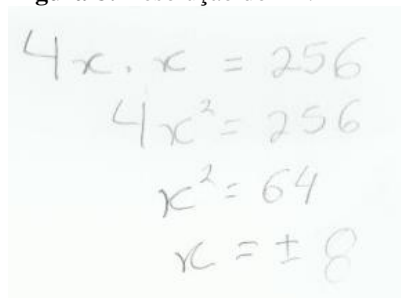 4x . x = 256
4x² = 256
x² = 64
x = ± 8